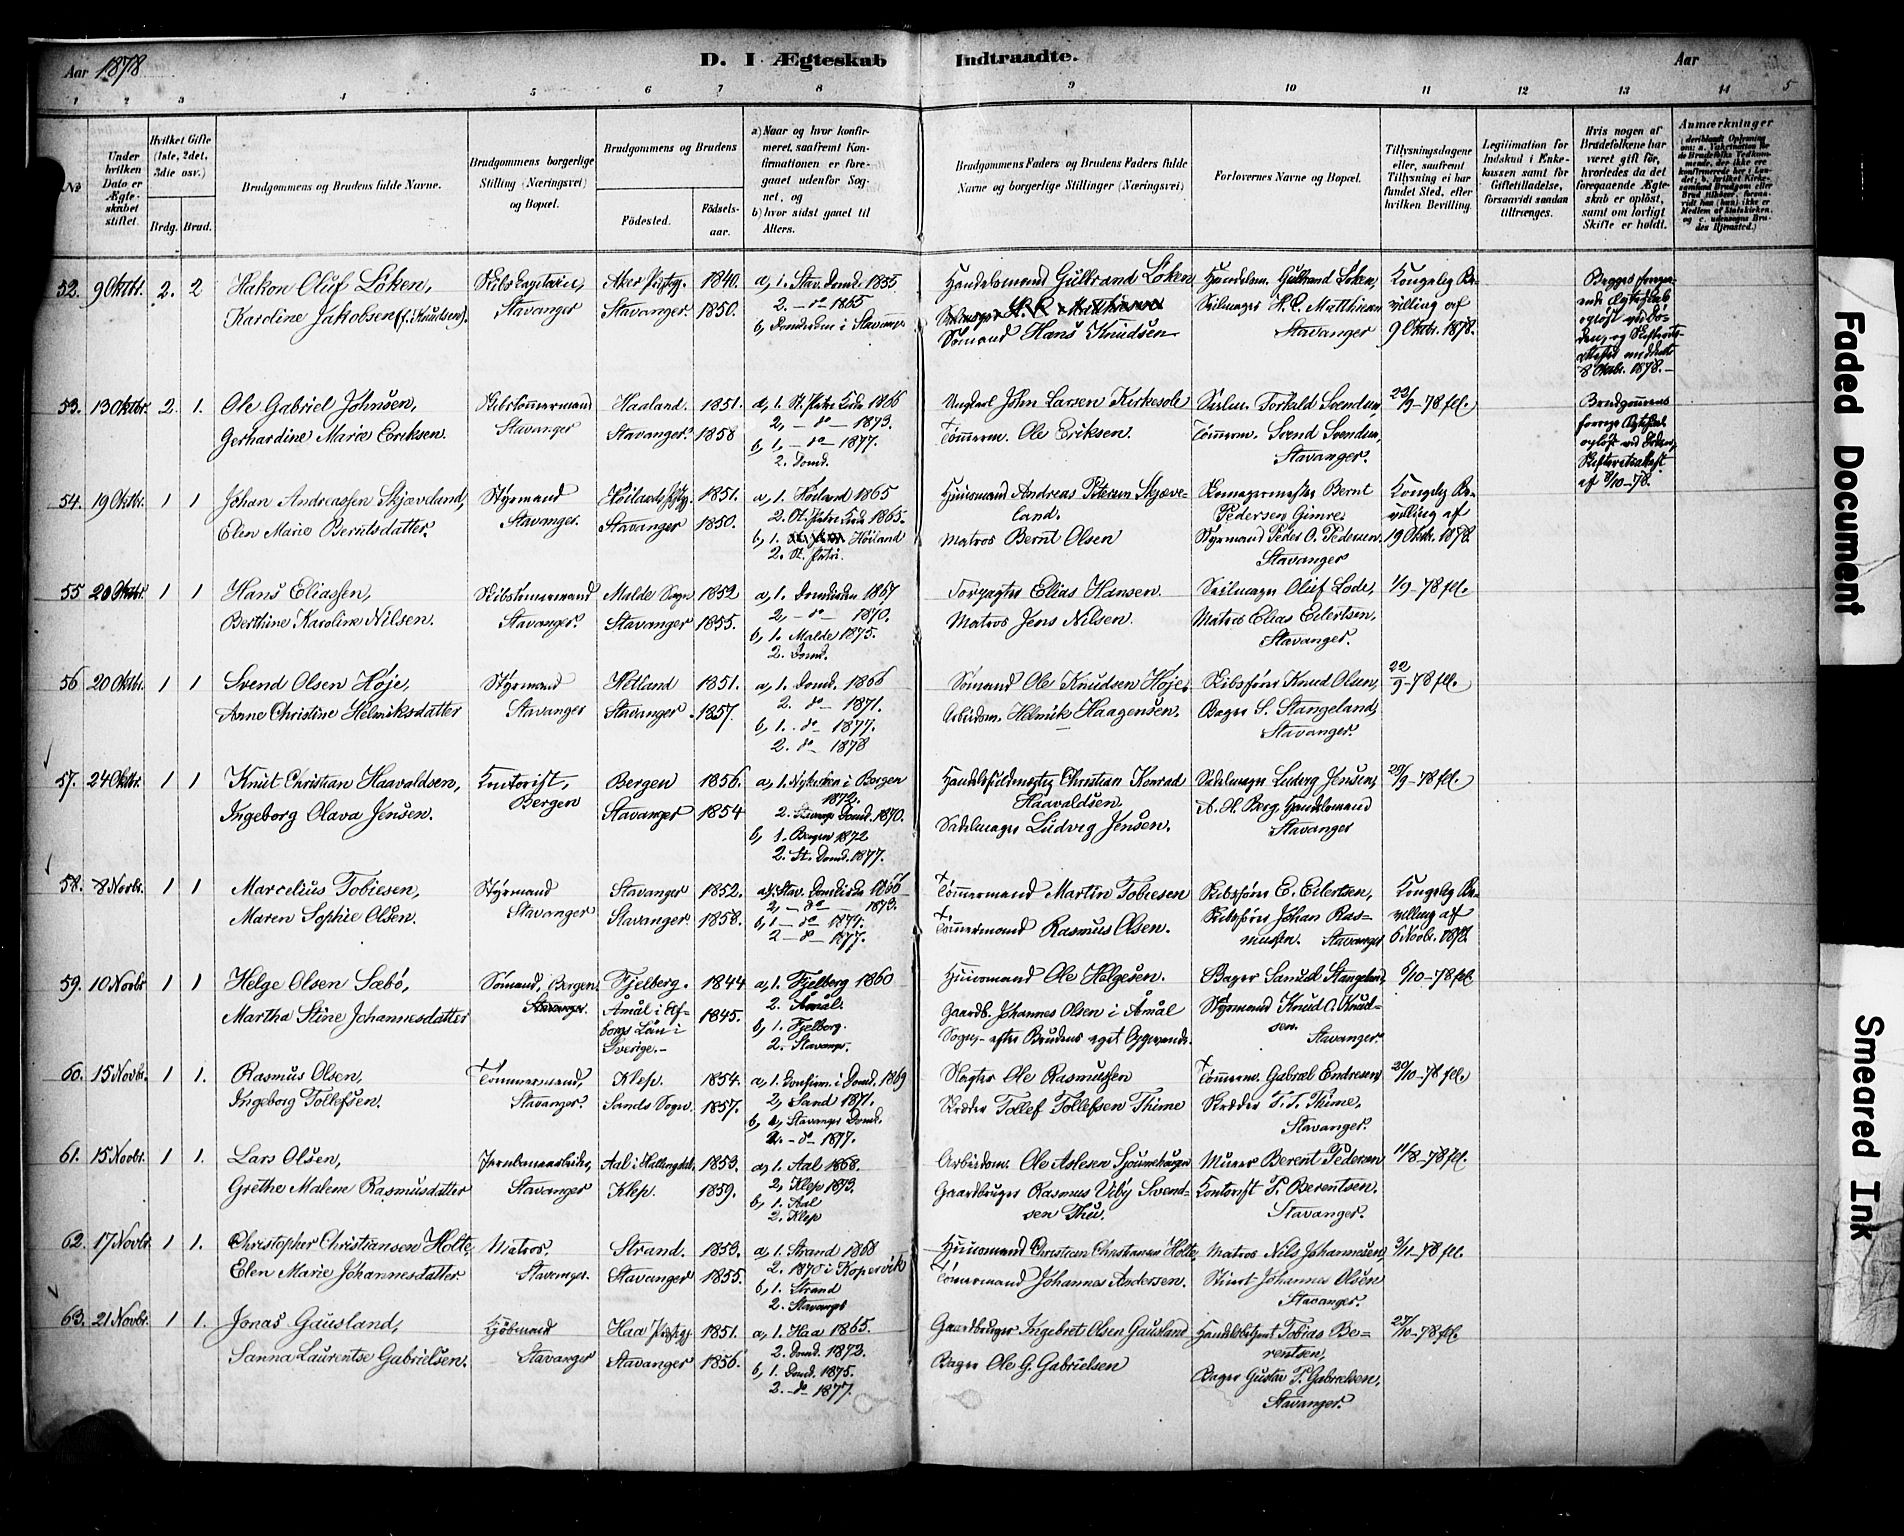 Aar 1878
D. I Ægteskab Indtraadte.
Aar
1 2 3 4 5 6 7 8 9 10 11 12 13 14 5
No
Under hvilken Dato er Ægteskabet stiftet.
Hvilket Gifte (1ste, 2det, 3die osv.)
Brdg. Brud.
Brudgommens og Brudens fulde Navne.
Brudgommens borgerlige Stilling (Næringsvei) og Bopæl.
Brudgommens og Brudens
Fødested. Fødselsaar.
a) Naar og hvor konfirmeret, saafremt Konfirmationen er foregaaet udenfor Sognet, og
b) hvor sidst gaaet til Alters.
Brudgommens Faders og Brudens Faders fulde Navne og borgerlige Stillinger (Næringsvei)
Forlovernes Navne og Bopæl.
Tillysningsdagene eller, saafremt Tillysning ei har fundet Sted, efter hvilken Bevilling.
Legitimation for Indskud i Enkekassen samt for Giftetilladelse, forsaavidt saadan tiltrænges.
Hvis nogen af Brudefolkene har været gift før, hvorledes da det foregaaende Ægteskab er opløst, samt om lovligt Skifte er holdt.
Anmærkninger
52. 9 Oktbr. 2. 2 Hakon Oluf Löken, Skibscaptain, Aker Prstgj. 1840. a, 1. Stav. Domk. 1855 Handelsmand Gulbrand Löken Handelsm. Gulbrand Löken, Kongelig Be-
Karoline Jakobsen (f. Knudsen). Stavanger Stavanger. 1850. 2. — do 1865 Seilmager H. C. Matthiesen villing af
b, Domkirken i Stavanger Sömand Hans Knudsen Stavanger 9 Oktbr. 1878.
Begges foregaaende Ægteskab opløst ved Döden, og Skifteretsattest 8 Oktbr. 1878.
53. 13 Oktbr. 2. 1. Ole Gabriel Johnsen, Skibstömmermand Haaland. 1851. a, 1. St. Petri Kirke 1866 John Larsen Kirkesole Seilm. Torkald Svendsen, 22/9-78 fl.
Gerhardine Marie Eriksen. Stavanger Stavanger. 1858 2, — do — 1873. Tömmerm. Ole Eriksen. Tömmerm. Svend Svendsen,
b, 1. — do — 1877. Stavanger.
2. Domk.
Brudgommens forrige Ægteskab opløst ved Döden, Skifteretsattest af 8/10-78.
54. 19 Oktbr. 1 1 Johan Andreassen Skjæveland, Styrmand Höilands Prstgj. 1851. a, 1. Höiland 1865 Huusmand Andreas Petersen Skjæve- Bernt Kongelig Be-
Elen Marie Berntsdatter. Stavanger. Stavanger 1850. 2. St. Petri Kirke 1865. land. Pedersen Gimre villing af
b, 1. Höiland Matros Bernt Olsen Styrmand Peder O. Pedersen, 19 Oktbr. 1878
2. St. Petri. Stavanger
55 20 Oktbr. 1 1 Hans Eliassen, Skibstömmermand Malde Sogn 1852 a, 1. Domkirken 1867 Elias Hansen. Seilmager Oluf Lode, 1/9-78 fl.
Berthine Karoline Nilsen. Stavanger. Stavanger 1855. 2, — do — 1870. Matros Jens Nilsen. Matros Elias Eilertsen,
b, 1. Malde 1875. Stavanger.
2. Domk.
56 20 Oktbr. 1 1 Svend Olsen Höje, Styrmand Hetland 1851. a, 1. Domk. 1866 Sömand Ole Knudsen Höje, Skibsförer Knud Olsen, 22/9-78 fl.
Anne Christine Helmiksdatter Stavanger Stavanger. 1857. 2. do — 1871. Arbeidsm. Helmik Haagensen. Bager S. Stangeland,
b, 1. do — 1877. Stavanger.
2. do — 1878
57. 24 Oktbr. 1 1 Knut Christian Haavaldsen, Kontorist, Bergen 1856. a, 1. Nykirken i Bergen Christian Konrad Sadelmager Ludvig Jensen, 29/9-78 fl.
Ingeborg Olava Jensen. Bergen Stavanger 1854 1872. Haavaldsen A. H. Berg, Handelsmand
2. Domk. 1870. Sadelmager Ludvig Jensen. Stavanger
b, 1. Bergen 1872
2. St. Domk. 1877.
58. 8 Novbr. 1 1 Marcelius Tobiesen, Styrmand Stavanger 1852. a, 1. Stav. Domkirke 1866 Tömmermand Martin Tobiesen Skibsförer E. Eilertsen, Kongelig Be-
Maren Sophie Olsen. Stavanger Stavanger 1858. 2, — do — 1873. Tömmermand Rasmus Olsen. Skibsförer Johan Ras- villing af
b, 1 — do — 1877. mussen. Stavanger 6 Novbr. 1878.
2 — do — 1877.
59. 10 Novbr 1 1 Helge Olsen Sæbö, Sömand, Bergen, Fjelberg. 1844 a, 1. Fjelberg 1860 Huusmand Ole Helgesen. Bager Samuel Stangeland, 6/10-78 fl.
Martha Stine Johannesdatter Stavanger. Åmål i Elf- 1845. 2. Åmål. Gaardb. Johannes Olsen i Åmål Styrmand Knud O. Knud-
borgs Län i b, 1. Fjelberg. Sogn, — efter Brudens eget Opgivende. sen.
Sverige. — 2. Stavanger. Stavanger.
60. 15 Novbr. 1 1. Rasmus Olsen, Tömmermand, Klep. 1854. a, 1. Konfirm. i Domk. 1869 Slagter Ole Rasmussen Tömmerm. Gabriel Endresen 20/10-78 fl.
Ingeborg Tollefsen. Stavanger. Sands Sogn. 1857. 2, Sand 1871. Skrædder Tollef Tollefsen Thime Skrædder T. T. Thime,
b, 1, Stavanger Domk. Stavanger.
2. — do — 1877.
61. 15 Novbr. 1 1. Lars Olsen, Jernbanearbeider, Aal i Hallingdal. 1853. a, 1. Aal 1868. Arbeidsm. Ole Aslesen Murer Berent Pedersen 11/8-78 fl.
Grethe Malene Rasmusdatter Stavanger Klep. 1859. 2, Klep 1873. Gaardbruger Rasmus Viby Svend- Kontorist P. Berentsen.
b, 1. Aal sen Thu. Stavanger.
2. Klep
62. 17 Novbr 1 1. Christopher Christiansen Holte, Matros. Strand. 1853. a, 1. Strand 1868 Huusmand Christian Christiansen Holte, Matros Nils Johannesen, 3/11-78 fl
Elen Marie Johannesdatter Stavanger. Stavanger 1855. 2. 1870 i Kopervik Tömmermand Johannes Andersen. Johannes Olsen
b, 1. Strand Stavanger.
2. Stavanger
63. 21 Novbr. 1 1. Jonas Gausland, Kjöbmand Haa Prstgj. 1851. a, 1. Haa 1865. Gaardbruger Ingebret Olsen Gausland Handelsbetjent Tobias Be- 27/10-78 fl.
Sanna Laurentse Gabrielsen. Stavanger Stavanger 1856. 2. Domk. 1873. Bager Ole G. Gabrielsen rentsen,
b, 1. Domk. 1875. Bager Gustav P. Gabrielsen,
2. — do — 1877. Stavanger.
Faded Document
Smeared Ink